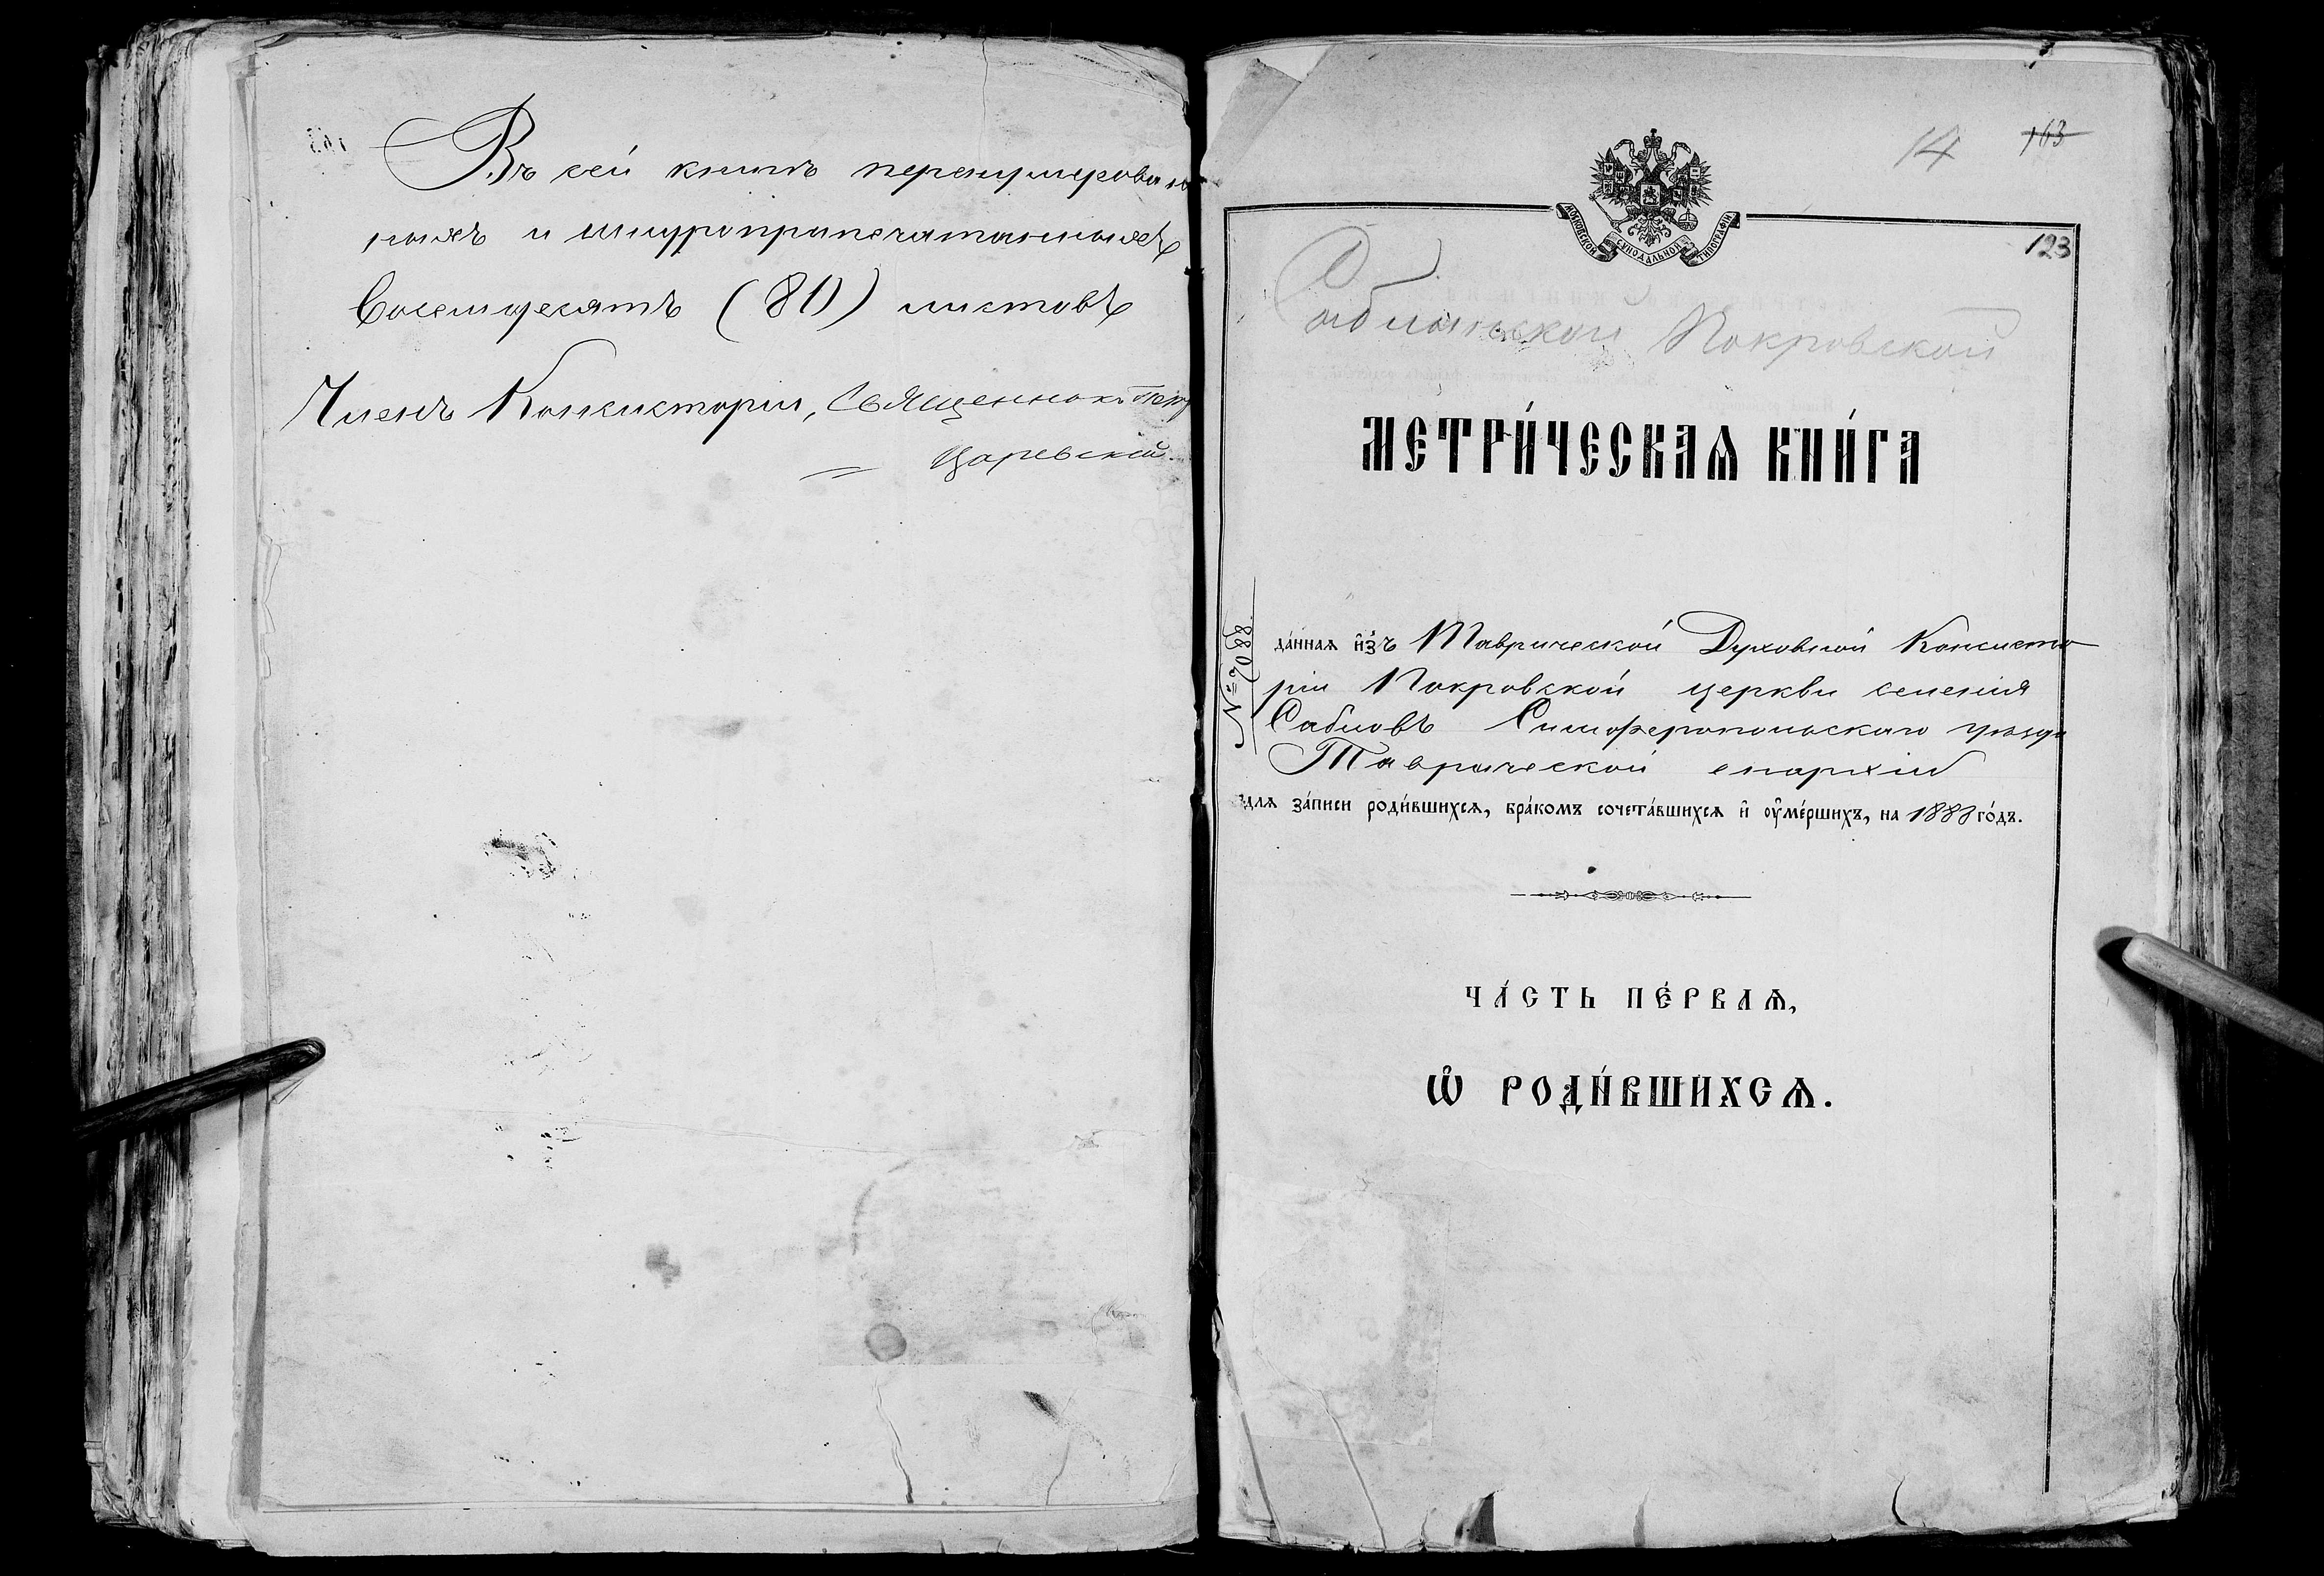 Въ сей книгѣ перенумерован
ныхъ и шнуроприпечатанныхъ
восемдесятъ (80) листовъ
Членъ Консисторіи, Священникъ Петръ
Царевскій.
14 163
МОСКОВСКОЙ СѴНОДАЛЬНОЙ ТИПОГРАФІИ
123
Саблынской Покровской
МЕТРИ́ЧЕСКАѦ КНИ́ГА
№ 7088
да́ннаѧ и҆́зъ Таврической Духовной Консисто
ріи Покровской церкви селенія
Сабловъ Симферопольскаго уѣзда
Таврической епархіи
длѧ за́писи роди́вшихсѧ, бра́комъ сочета́вшихсѧ и҆ ᲂу҆ме́ршихъ, на 1888 го́дъ.
ЧА́СТЬ ПЕ́РВАѦ,
Ѡ҆ РОДИ́ВШИХСѦ.